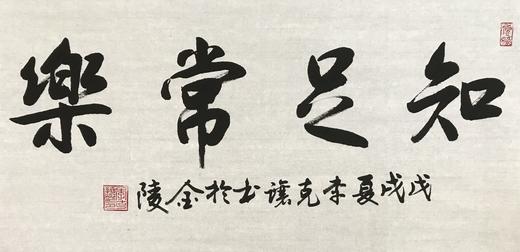 知足常樂
戊戌夏李克讓书於金陵